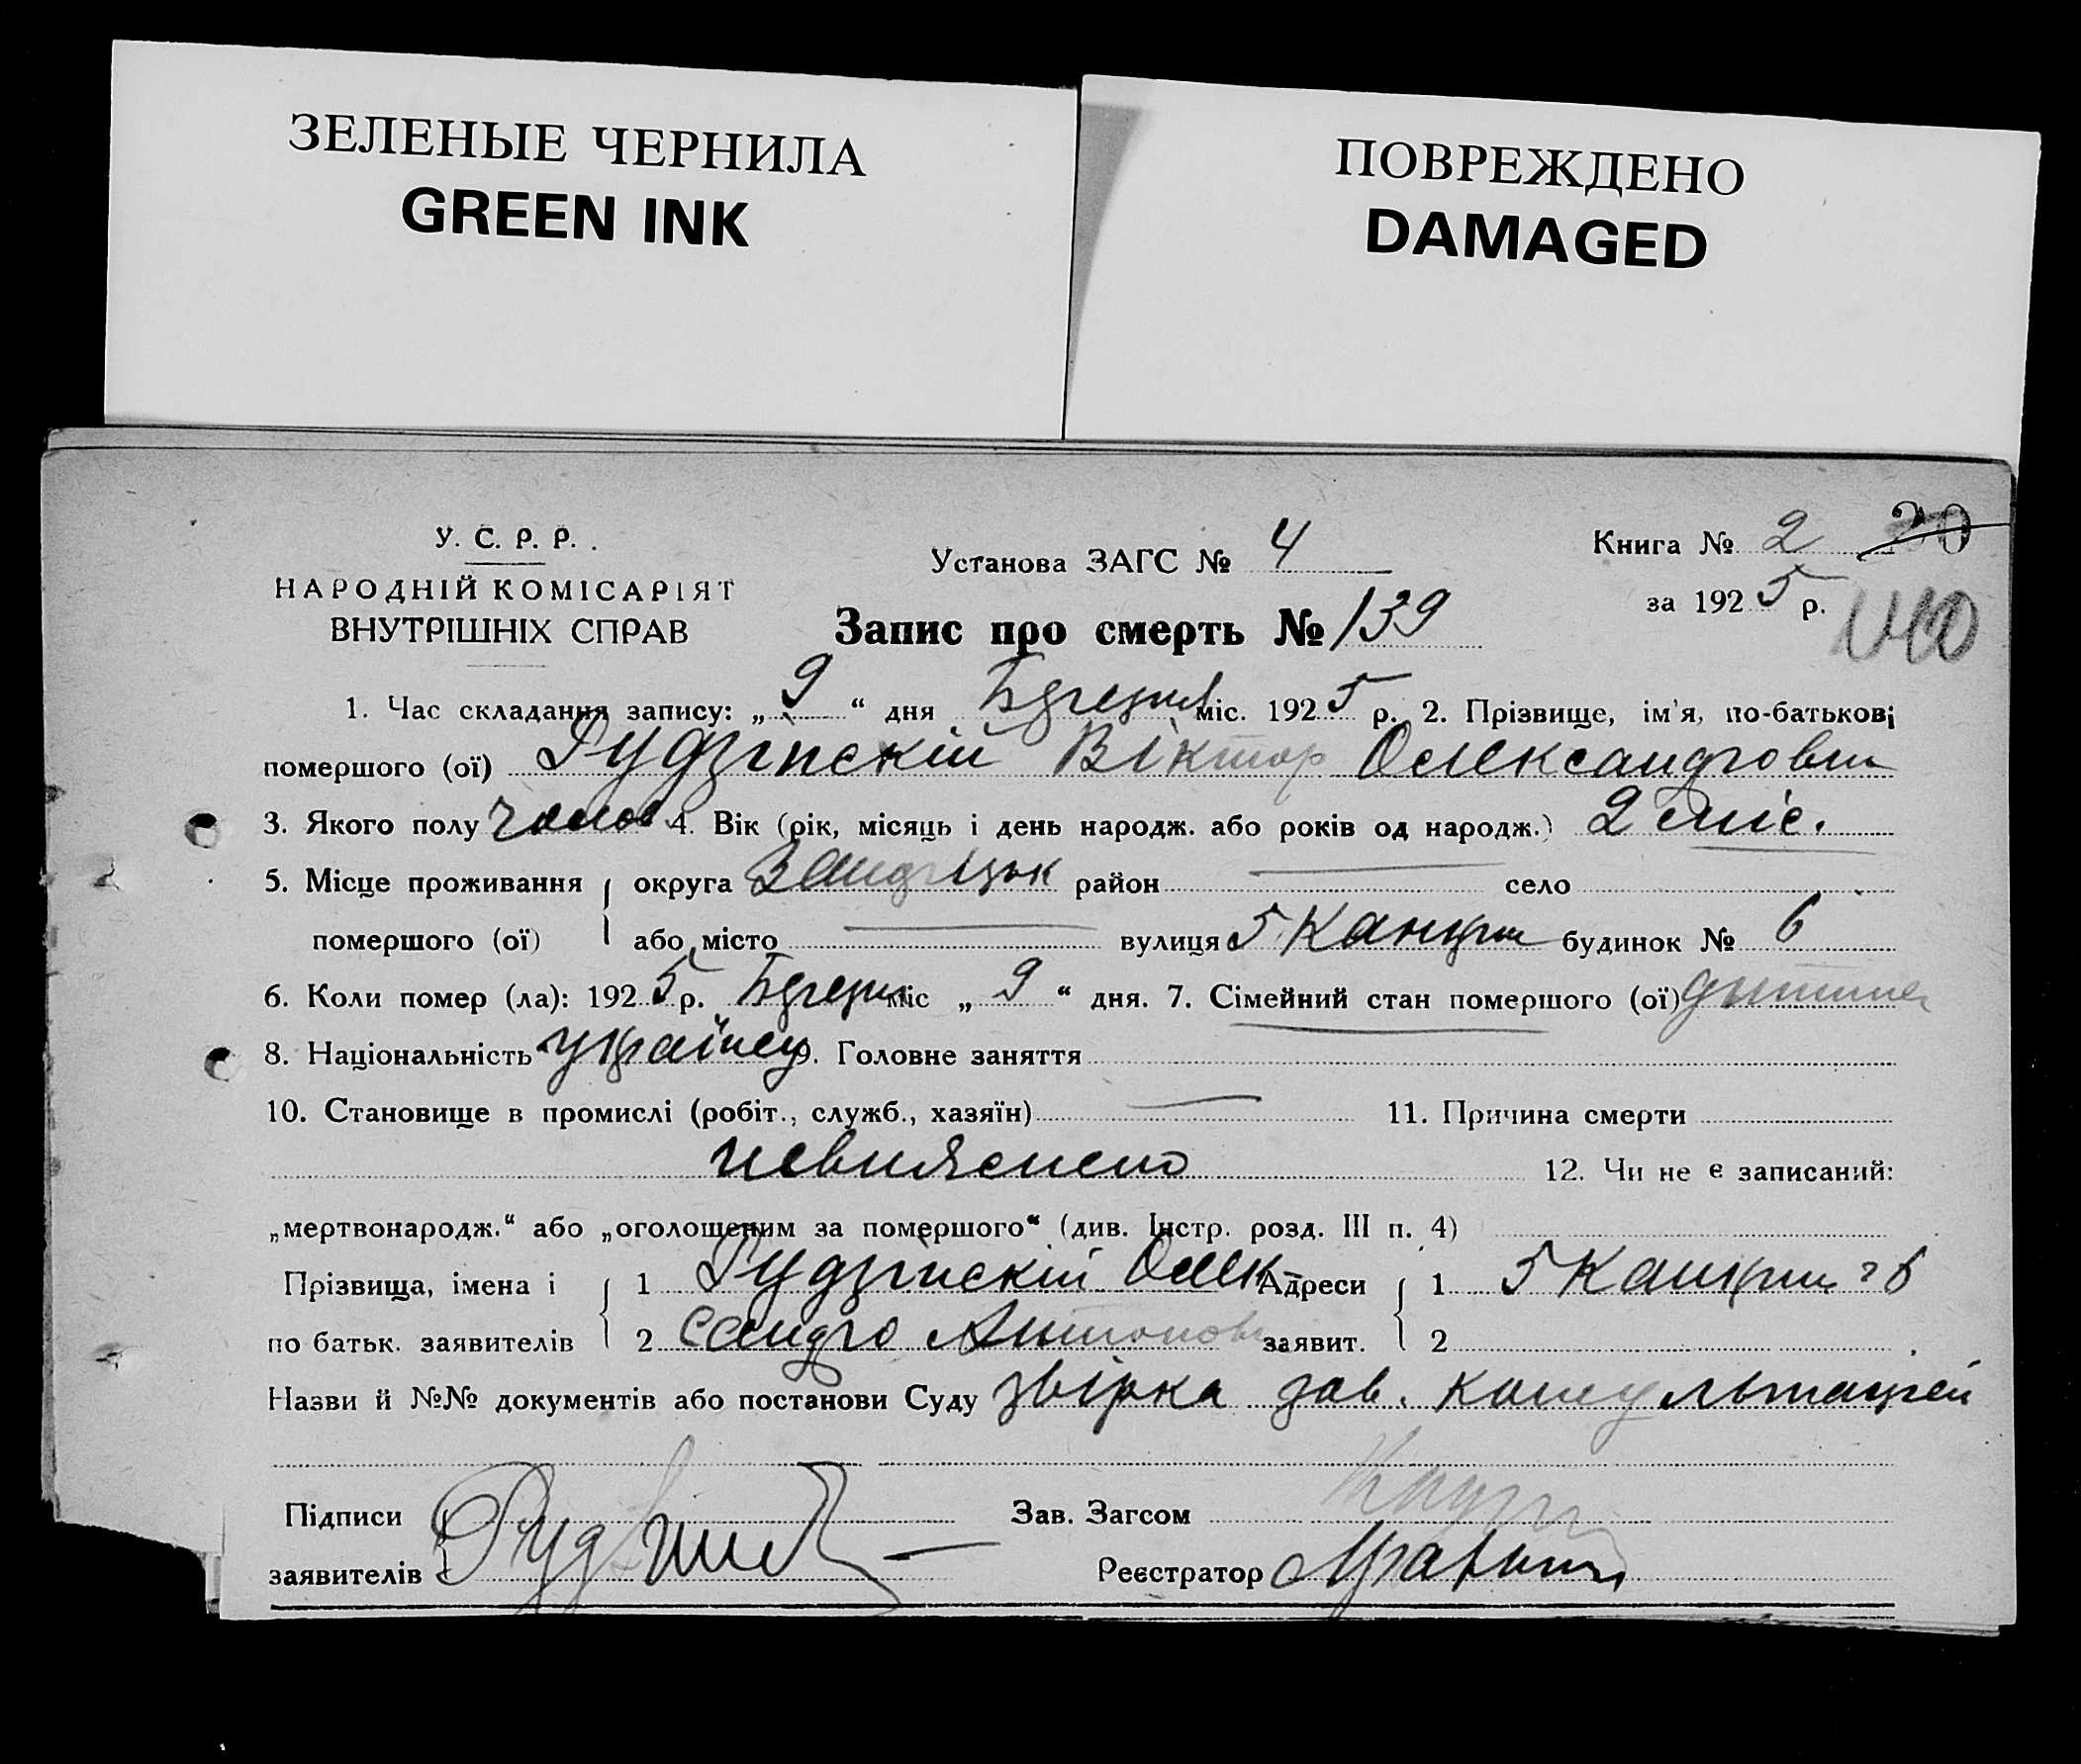 ЗЕЛЕНЫЕ ЧЕРНИЛА
GREEN INK
ПОВРЕЖДЕНО
DAMAGED
У. С. Р. Р.
НАРОДНІЙ КОМІСАРІЯТ
ВНУТРІШНІХ СПРАВ
Установа ЗАГС № 4
Книга № 2 20
за 1925 р.
Запис про смерть № 139
1. Час складання запису: „9“ дня Березня міс. 1925 р. 2. Прізвище, ім'я, по-батькові
помершого (ої) Гудзінскій Віктор Олександрович
3. Якого полу чолов 4. Вік (рік, місяць і день народж. або років од народж.) 2 міс.
5. Місце проживання округа район село
помершого (ої) або місто вулиця 5 будинок № 6
6. Коли помер (ла): 1925 р. Березня міс „9“ дня. 7. Сімейний стан помершого (ої) дитина
8. Національність українец 9. Головне заняття
10. Становище в промислі (робіт., служб., хазяїн) 11. Причина смерти
невияснено 12. Чи не є записаний:
„мертвонародж.“ або „оголошеним за помершого“ (див. Інстр. розд. III п. 4)
Прізвища, імена і 1 Гудзінскій Олек Адреси 1 5
по батьк. заявителів 2 сандро Антонов заявит. 2
Назви й №№ документів або постанови Суду звірка зав. консультацией
Підписи Зав. Загсом
заявителів Реєстратор